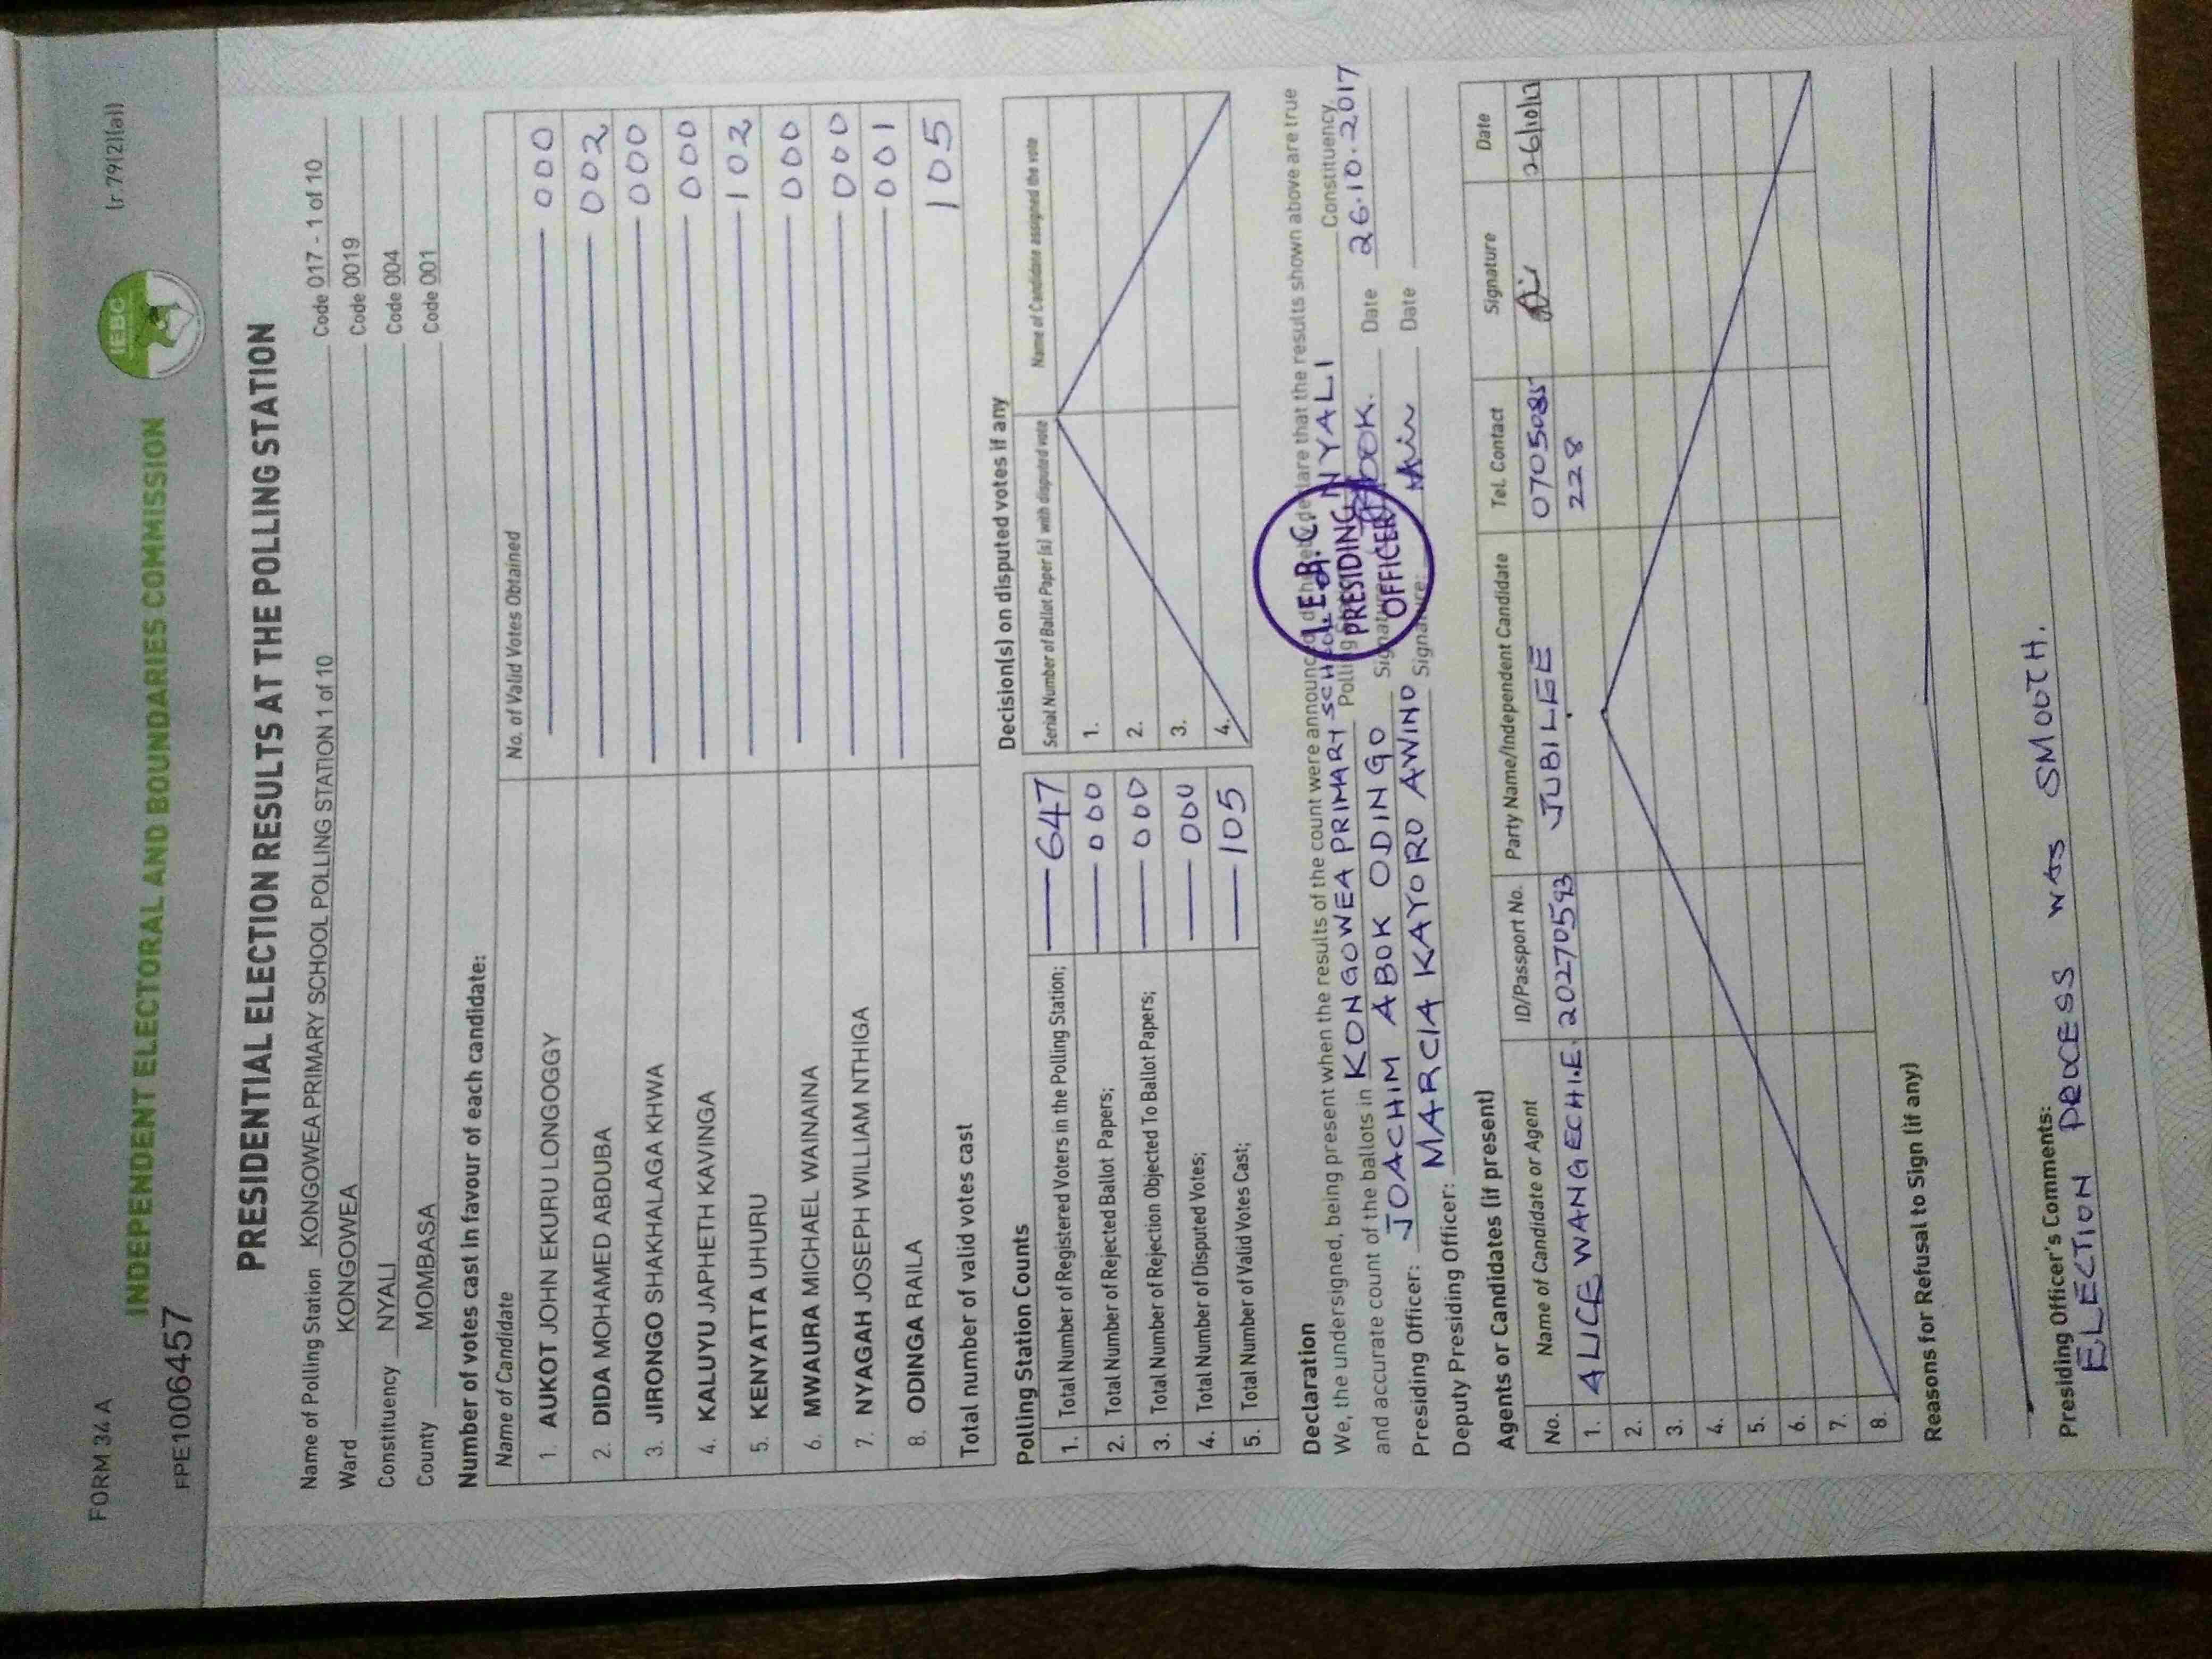 FORM 34 A (r 79(2)(a))
IEBC
INDEPENDENT ELECTORAL AND BOUNDARIES COMMISSION
FPE1006457
PRESIDENTIAL ELECTION RESULTS AT THE POLLING STATION
Name of Polling Station KONGOWEA PRIMARY SCHOOL POLLING STATION 1 of 10 Code 017 - 1 of 10
Ward KONGOWEA Code 0019
Constituency NYALI Code 004
County MOMBASA Code 001
Number of votes cast in favour of each candidate:
Name of Candidate No. of Valid Votes Obtained
1. AUKOT JOHN EKURU LONGOGGY 000
2. DIDA MOHAMED ABDUBA 002
3. JIRONGO SHAKHALAGA KHWA 000
4. KALUYU JAPHETH KAVINGA 000
5. KENYATTA UHURU 102
6. MWAURA MICHAEL WAINAINA 000
7. NYAGAH JOSEPH WILLIAM NTHIGA 000
8. ODINGA RAILA 001
Total number of valid votes cast 105
Polling Station Counts
1. Total Number of Registered Voters in the Polling Station; 647
2. Total Number of Rejected Ballot Papers; 000
3. Total Number of Rejection Objected To Ballot Papers; 000
4. Total Number of Disputed Votes; 000
5. Total Number of Valid Votes Cast; 105
Decision(s) on disputed votes if any
Serial Number of Ballot Paper (s) with disputed vote Name of Candidate assigned the vote
1.
2.
3.
4.
Declaration
We, the undersigned, being present when the results of the count were announced, do hereby declare that the results shown above are true
and accurate count of the ballots in KONGOWEA PRIMARY SCHOOL Polling NYALI Constituency.
Presiding Officer: JOACHIM ABOK ODINGO Signature: Date 26.10.2017
Deputy Presiding Officer: MARCIA KAYORO AWINO Signature: Date
I.E.B.C.
PRESIDING
OFFICER
Agents or Candidates (if present)
No. Name of Candidate or Agent ID/Passport No. Party Name/Independent Candidate Tel. Contact Signature Date
1. ALICE WANGECHIE 20270593 JUBILEE 0705085 26/10/17
228
2.
3.
4.
5.
6.
7.
8.
Reasons for Refusal to Sign (if any)
Presiding Officer's Comments:
ELECTION PROCESS WAS SMOOTH.